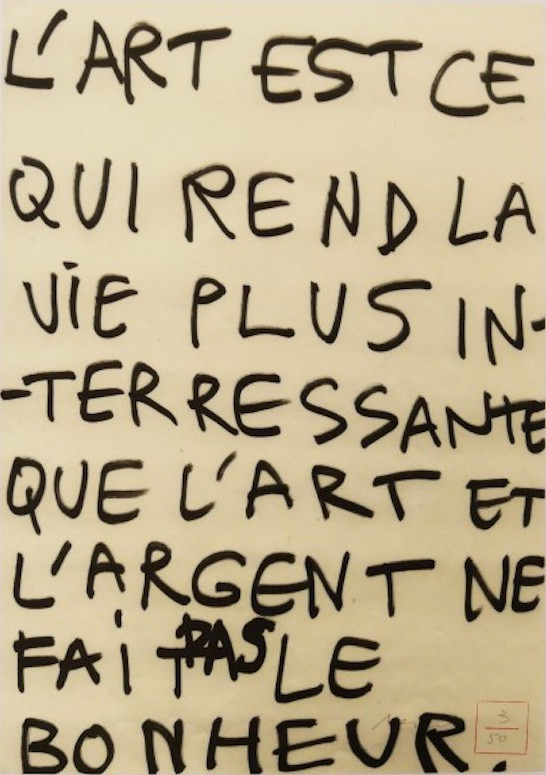 L'ART EST CE
QUI REND LA
ViE PLUS IN-
-TERRESSANTE
QUE L'ART ET
L'ARGENT NE
FAiT PAS LE
BONHEUR.
3
50